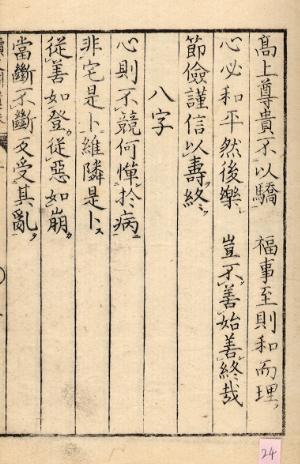 髙上尊貴不以驕　福事至則和而理
心必和平然後樂　豈不善始善終哉
節儉謹信以壽終
八字
心則不競何憚扵病
非宅是卜維隣是卜
從善如登從惡如崩
當斷不斷反受其亂
24